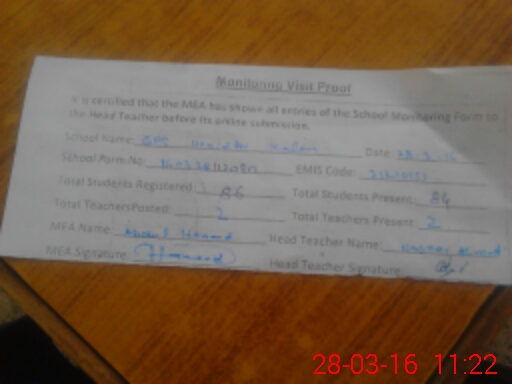 Monitoring Visit Proof
It is certified that the MEA has shown all entries of the School Monitoring Form to
the Head Teacher before its online submission.
School Name: GPS Date: 28-3-16
School Form No: EMIS Code:
Total Students Registered: 86 Total Students Present: 84
Total Teachers Posted: 2 Total Teachers Present: 2
MEA Name: Abdul Hameed Head Teacher Name:
MEA Signature: Hameed Head Teacher Signature:
28-03-16 11:22